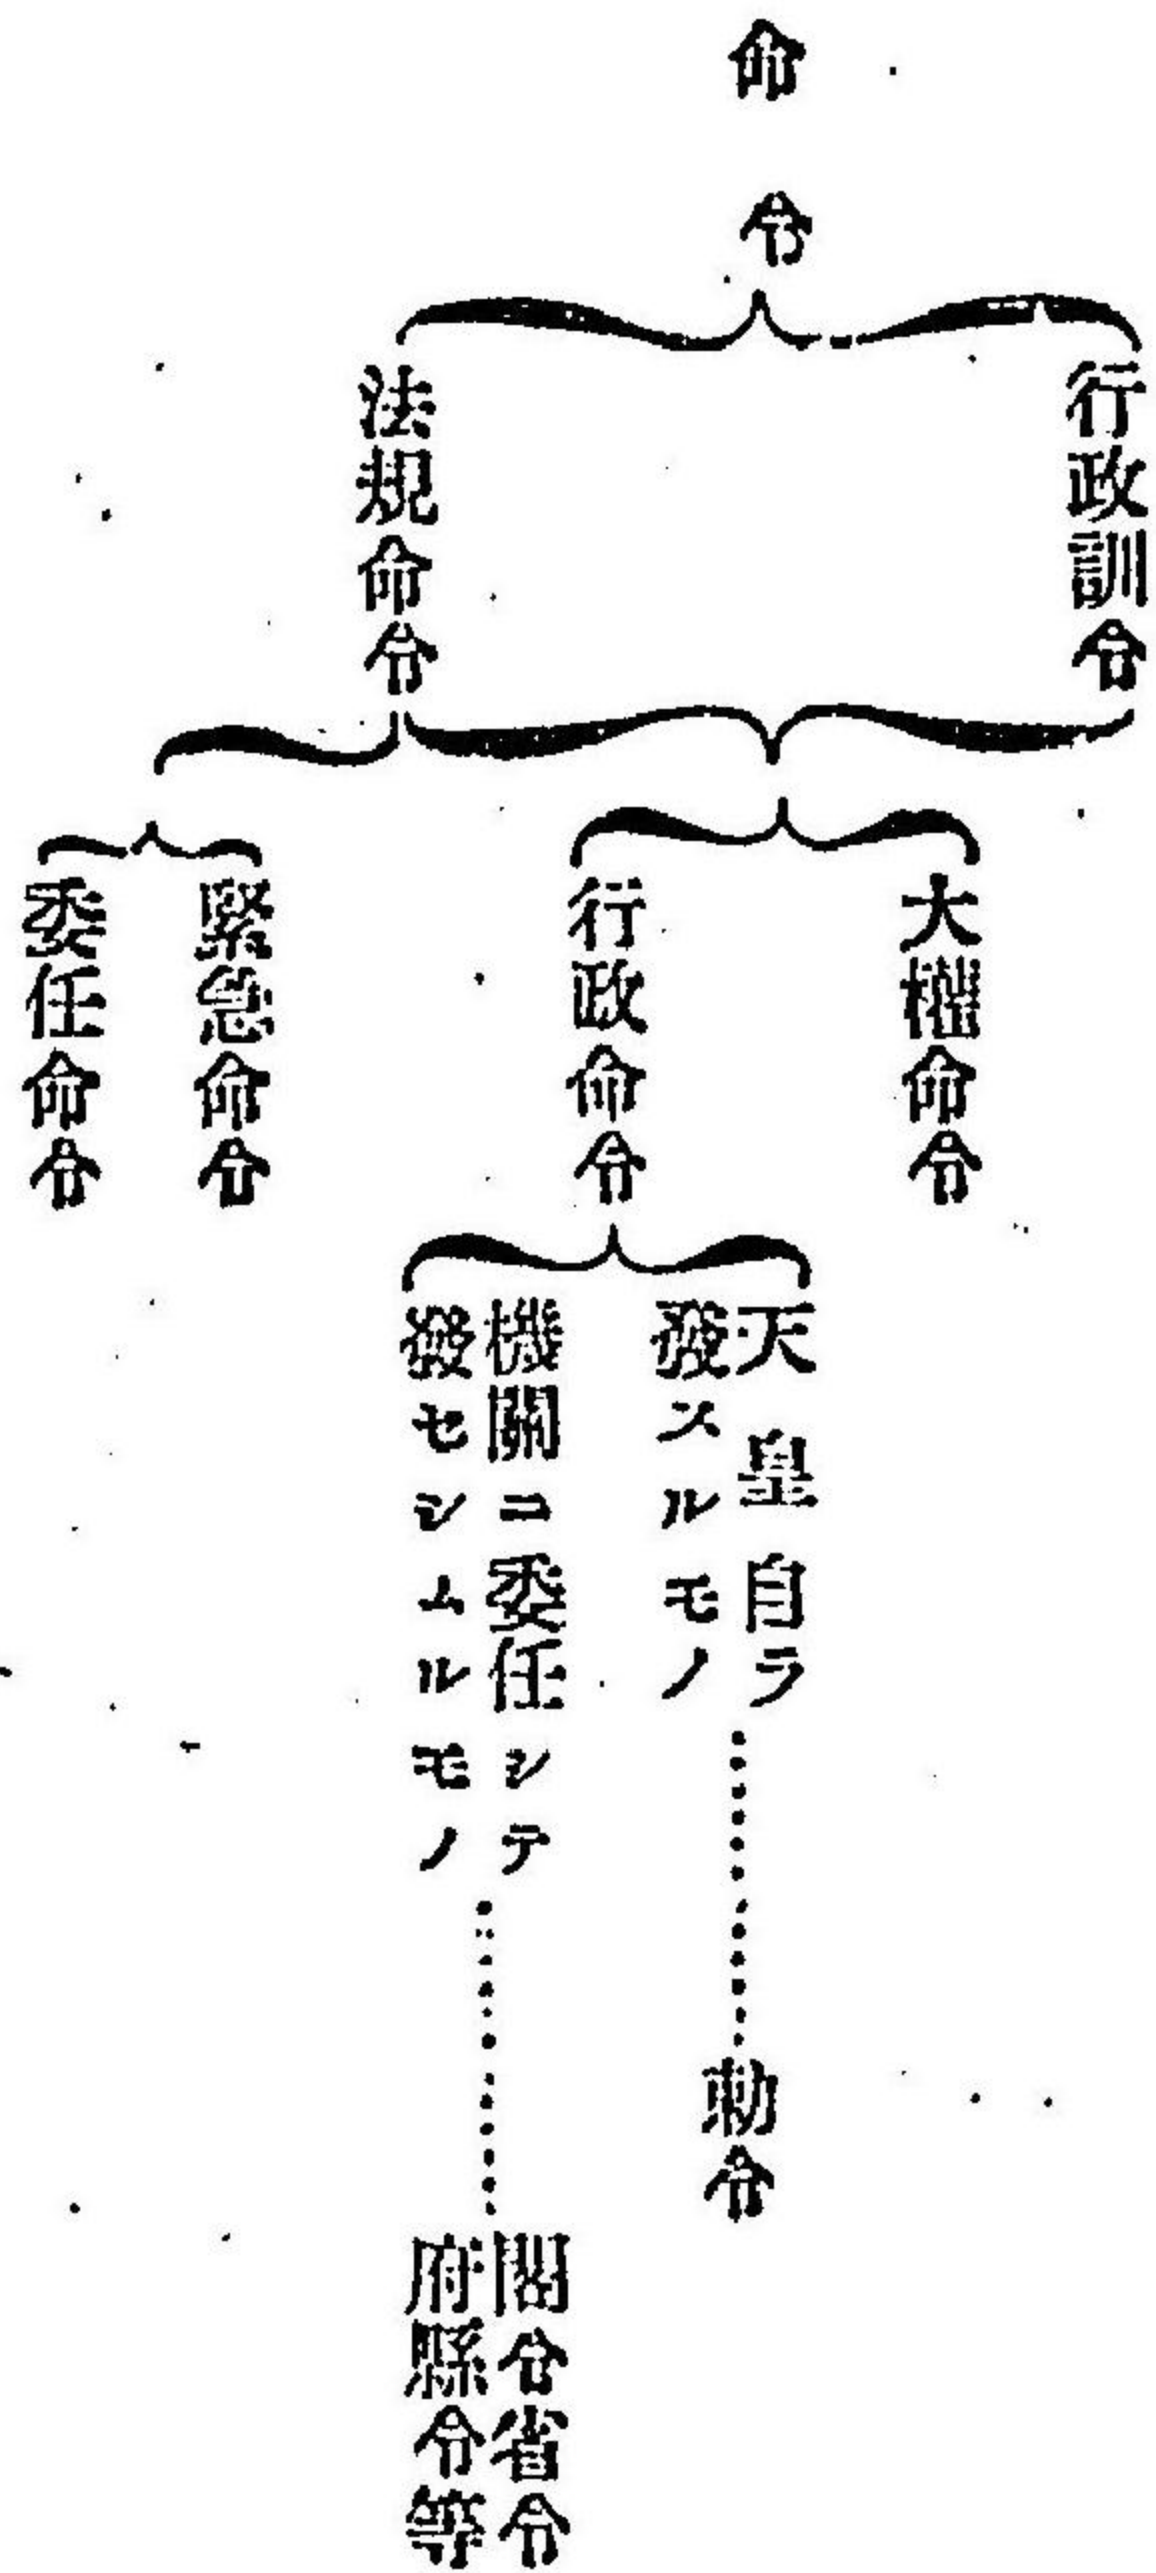 命令
行政訓令
法規命令
大權命令
行政命令
緊急命令
委任命令
天皇自ラ
發スルモノ
機關ニ委任シテ
發セシムルモノ
勅令
閣令省令
府縣令等